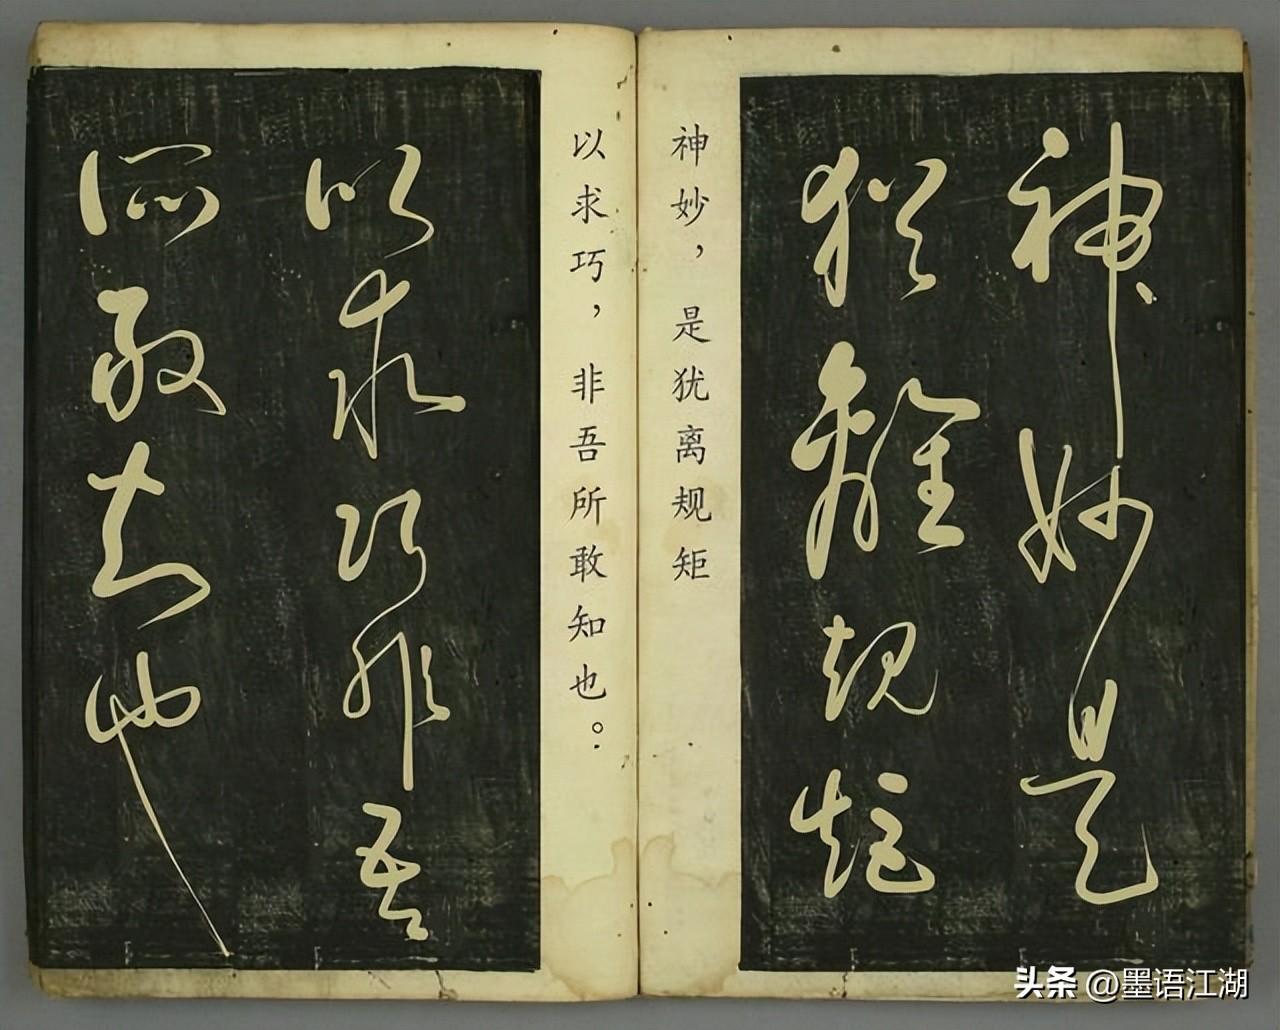 神妙是
犹离规矩
神妙，是犹离规矩
以求巧，非吾所敢知也。
以求巧非吾
所敢知也
头条 @墨语江湖